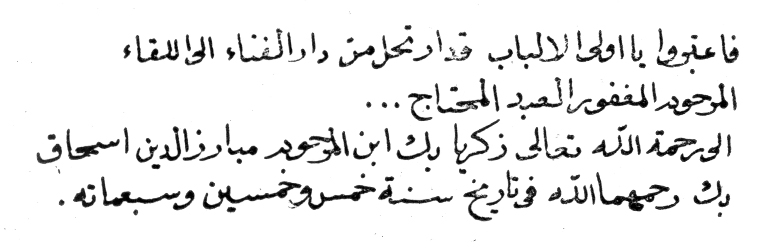 فاعتبروا يا اولى الالباب قد ارتحل من دار الفناء الى اللقاء
المرحوم المغفور العبد المحتاج ...
الى رحمة الله تعالى زكريا بك ابن المرحوم مبارز الدين اسحاق
بك رحمهما الله فى تاريخ سنة خمس وخمسين وسبعمائه .